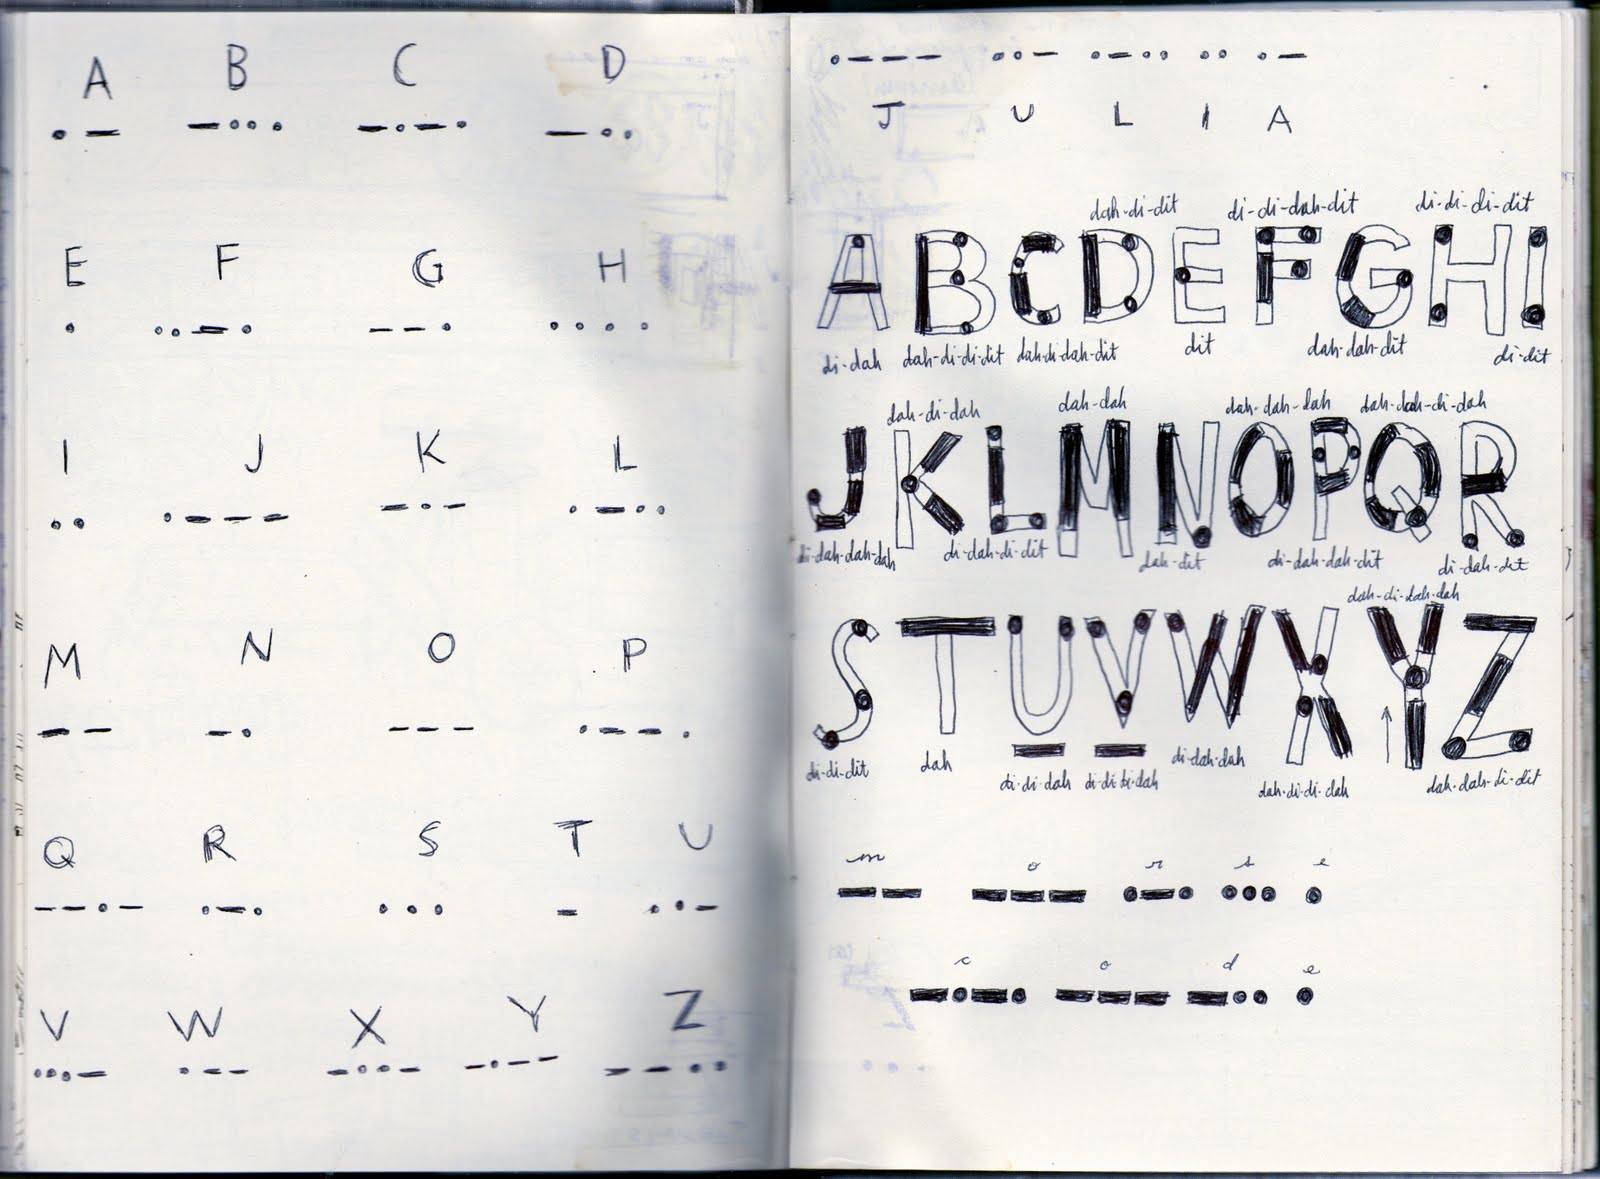 A B C D
• — —••• —•—• —••
E F G H
• ••—• ——• ••••
I J K L
•• •——— —•— •—••
M N O P
—— —• ——— •——•
Q R S T U
——•— •—• ••• — ••—
V W X Y Z
•••— •—— —••— —•—— ——••
•——— ••— •—•• •• •—
J U L I A
dah-di-dit di-di-dah-dit di-di-di-dit
A B C D E F G H I
di-dah dah-di-di-dit dah-di-dah-dit dit dah-dah-dit di-dit
dah-di-dah dah-dah dah-dah-dah dah-dah-di-dah
J K L M N O P Q R
di-dah-dah-dah di-dah-di-dit dah-dit di-dah-dah-dit di-dah-dit
dah-di-dah-dah
S T U V W X Y Z
di-di-dit dah di-di-dah di-di-di-dah di-dah-dah dah-di-di-dah dah-dah-di-dit
m o r s e
—— ——— •—• ••• •
c o d e
—•—• ——— —•• •